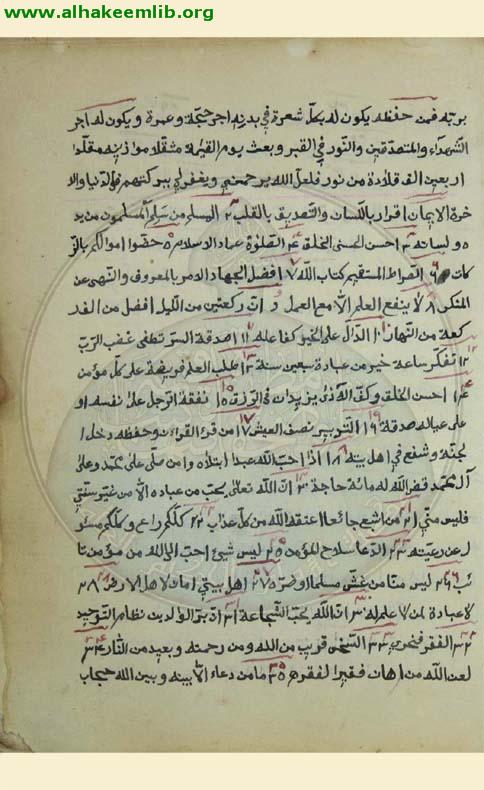 www.alhakeemlib.org
بربّه فمن حفظه يكون له بكلّ شعرة في بدنه اجر حجّة و عمرة و يكون له اجر
الشهدآء والمتصدّقين والنّور في القبر و بعث يوم القيمة مثقّلا موازينه مقلّدا
اربعين الف قلادة من نور فلعلّ الله يرحمني ويغفر لي ببركتهم في الدّنيا والا
خرة الايمان اقرار باللّسان والتصديق بالقلب ٢ المسلم من سلم المسلمون من يد
ه ولسانه ٣ احسن الحسن الخلق ٤ الصّلوة عماد الاسلام ٥ حصّنوا اموالكم بالزّ
كات ٦ الصّراط المستقيم كتاب الله ٧ افضل الجهاد الامر بالمعروف والنّهى عن
المنكر ٨ لا ينفع العلم الّا مع العمل ٩ انّ ركعتين من اللّيل افضل من الف ر
كعة من النّهار ١٠ الدّال على الخير كفاعله ١١ صدقة السرّ تطفى غضب الرّب
١٢ تفكّر ساعة خير من عبادة سبعين سنة ١٣ طلب العلم فريضة على كلّ مؤمن
١٤ احسن الخلق وكفّ الاذى يزيدان في الرّزق ١٥ نفقة الرّجل على نفسه او
على عياله صدقة ١٦ التّدبير نصف العيش ١٧ من قرء القراءن وحفظه دخل ا
لجنّة و شفّع في اهل بيته ١٨ اذا احبّ الله عبدا ابتلاه ١٩ من صلّى على محمّد وعلى
آل محمّد قضى الله له مائة حاجة ٢٠ انّ الله تعالى يحبّ من عباده من غير سنّتي
فليس منّي ٢١ من اشبع جائعا اعتقه الله من كلّ عذاب ٢٢ كلّكم راع و كلّكم مسئو
ل عن رعيّته ٢٣ الدّعا سلاح المؤمن ٢٥ ليس شيئ احبّ الى الله من مؤمن تا
ئب ٢٦ ليس منّا من غشّ مسلما او ضرّه ٢٧ اهل بيتي امان لاهل الارض ٢٨
لا عبادة لمن لا علم له ٣٠ انّ الله يحبّ الشّجاعة ٣١ انّ برّ الوالدين نظام التّوحيد
٣٢ الفقر فخري ٣٣ السّخى قريب من الله و من رحمته و بعيد من النّار ٣٤
لعن الله من اهان فقيرا لفقره ٣٥ ما من دعاء الّا بينه و بين الله حجاب